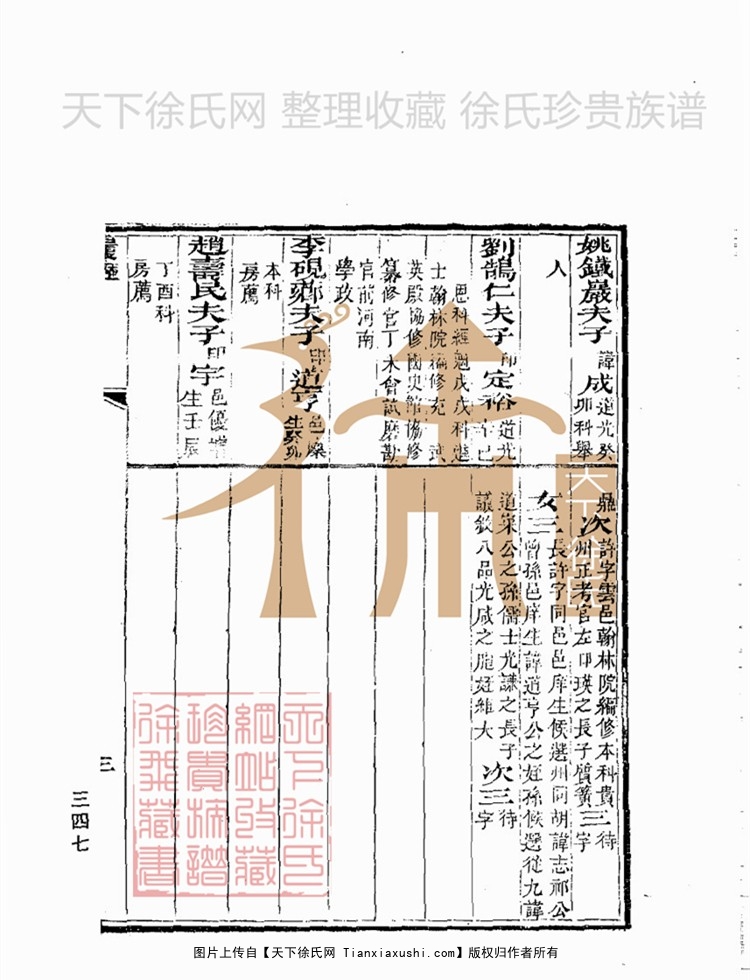 天下徐氏网 整理收藏 徐氏珍贵族谱
姚鐵巖夫子 諱成 道光癸
卯科舉
人
劉鶴仁夫子 印定裕 道光
辛巳
恩科經魁戊戌科進
士翰林院編修充 武
英殿協修國史館協修
纂修官丁未會試磨勘
官前河南
學政
李硯鄉夫子 印道亨 邑廩
生癸卯
本科
房薦
趙壽民夫子 印宇 邑優增
生壬辰
丁酉科
房薦
鼎 次 許字雲邑翰林院編修本科貴
州正考官左印瑛之長子質簧 三 待
字
女 三 長許字同邑邑庠生候選州同胡諱志祁公
曾孫邑庠生諱道亨公之姪孫候選從九諱
道榮公之孫儒士光謙之長子 次三 待
議敘八品光咸之胞姪維大 字
三
三四七
天下徐氏
網站收藏
珍貴族譜
徐
藏書
徐
天下徐氏
图片上传自【天下徐氏网 Tianxiaxushi.com】版权归作者所有